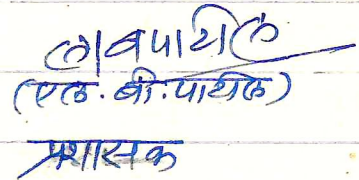 लबपाटील
(एल. बी. पाटील)
प्रशासक